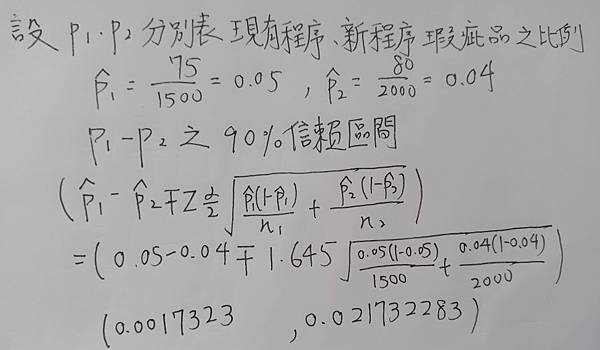 設 p₁.p₂ 分別表 現有程序、新程序 瑕疵品之比例
p̂₁ = 75/1500 = 0.05 , p̂₂ = 80/2000 = 0.04
p₁-p₂ 之 90%信賴區間
(p̂₁ - p̂₂ ∓ Z α/2 √(p̂₁(1-p̂₁)/n₁ + p̂₂(1-p̂₂)/n₂))
=(0.05-0.04 ∓ 1.645 √(0.05(1-0.05)/1500 + 0.04(1-0.04)/2000))
(0.0017323 , 0.021732283)